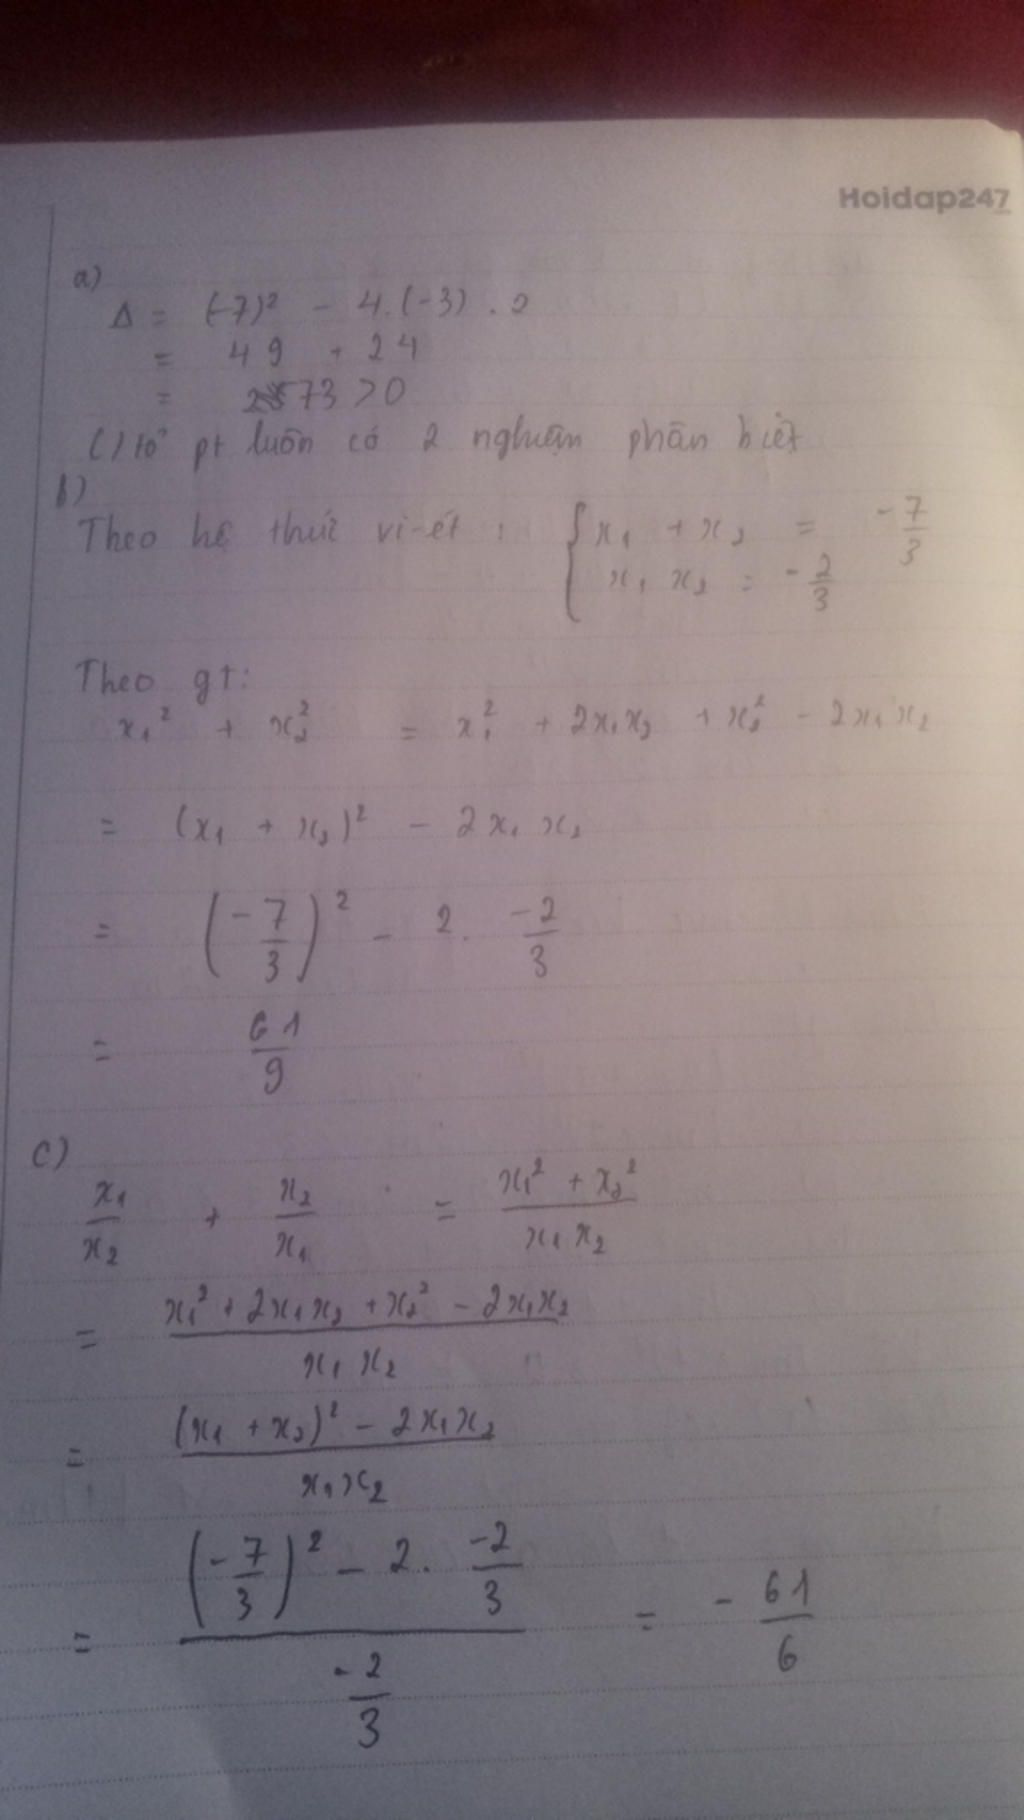 Hoidap247
a)
Δ = (-7)² - 4.(-3) . 2
= 49 + 24
= 73 > 0
pt luôn có 2 nghiệm phân biệt
b)
Theo hệ thức vi-ét : { x₁ + x₂ = -7/3
x₁ x₂ = -2/3
Theo gt:
x₁² + x₂² = x₁² + 2x₁x₂ + x₂² - 2x₁x₂
= (x₁ + x₂)² - 2x₁x₂
= (-7/3)² - 2. -2/3
= 61/9
c)
x₁/x₂ + x₂/x₁ = (x₁² + x₂²)/(x₁x₂)
= (x₁² + 2x₁x₂ + x₂² - 2x₁x₂)/(x₁x₂)
= ((x₁ + x₂)² - 2x₁x₂)/(x₁x₂)
= ((-7/3)² - 2. -2/3)/(-2/3) = -61/6